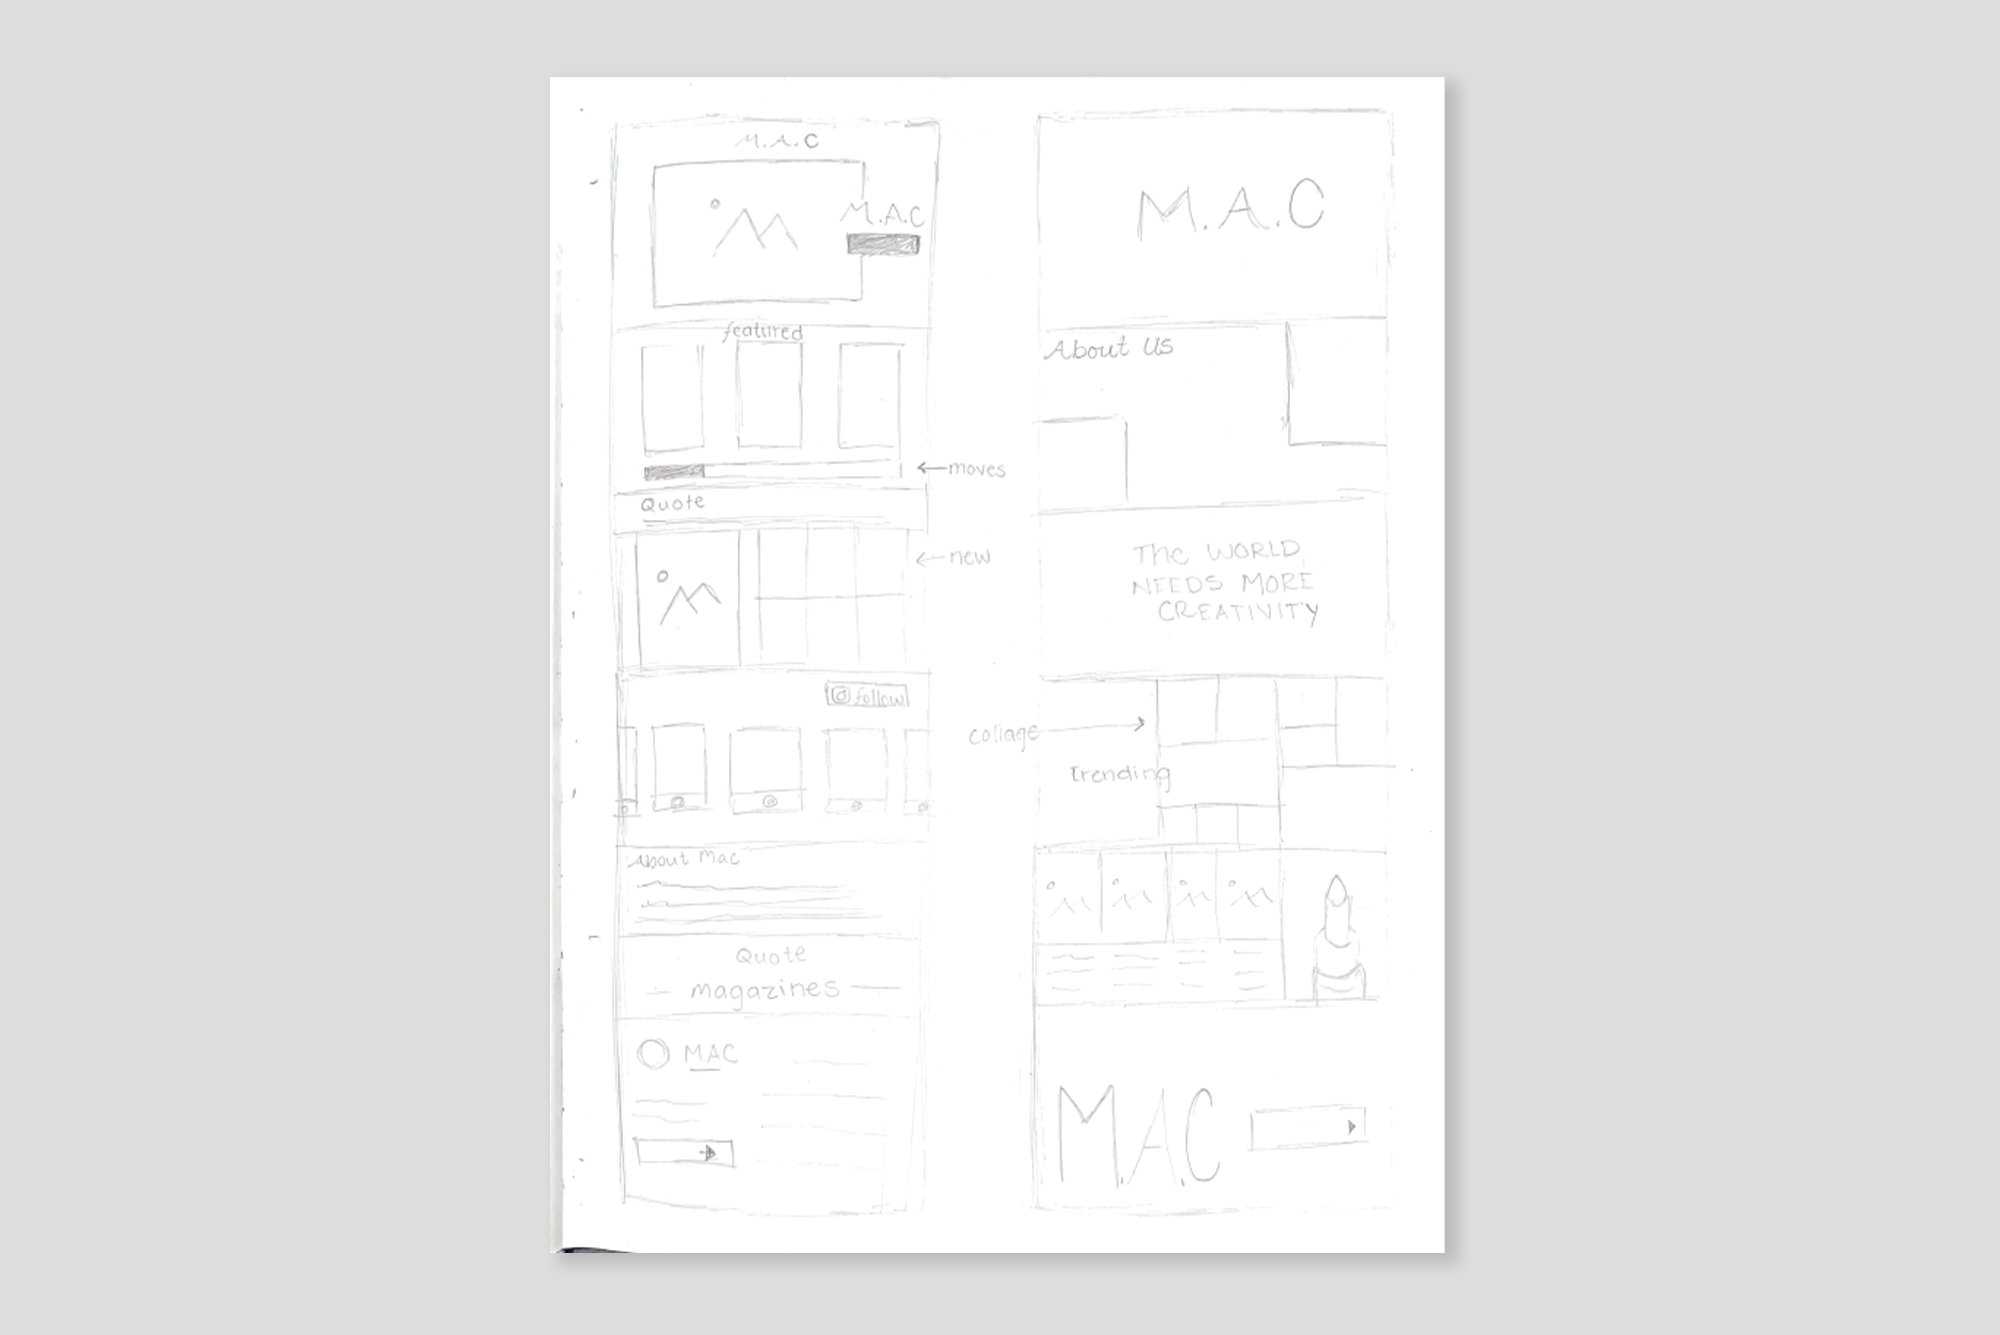 M.A.C
M.A.C
featured
←moves
Quote
←new
follow
About Mac
Quote
magazines
MAC
M.A.C
About Us
THE WORLD
NEEDS MORE
CREATIVITY
collage
trending
M.A.C